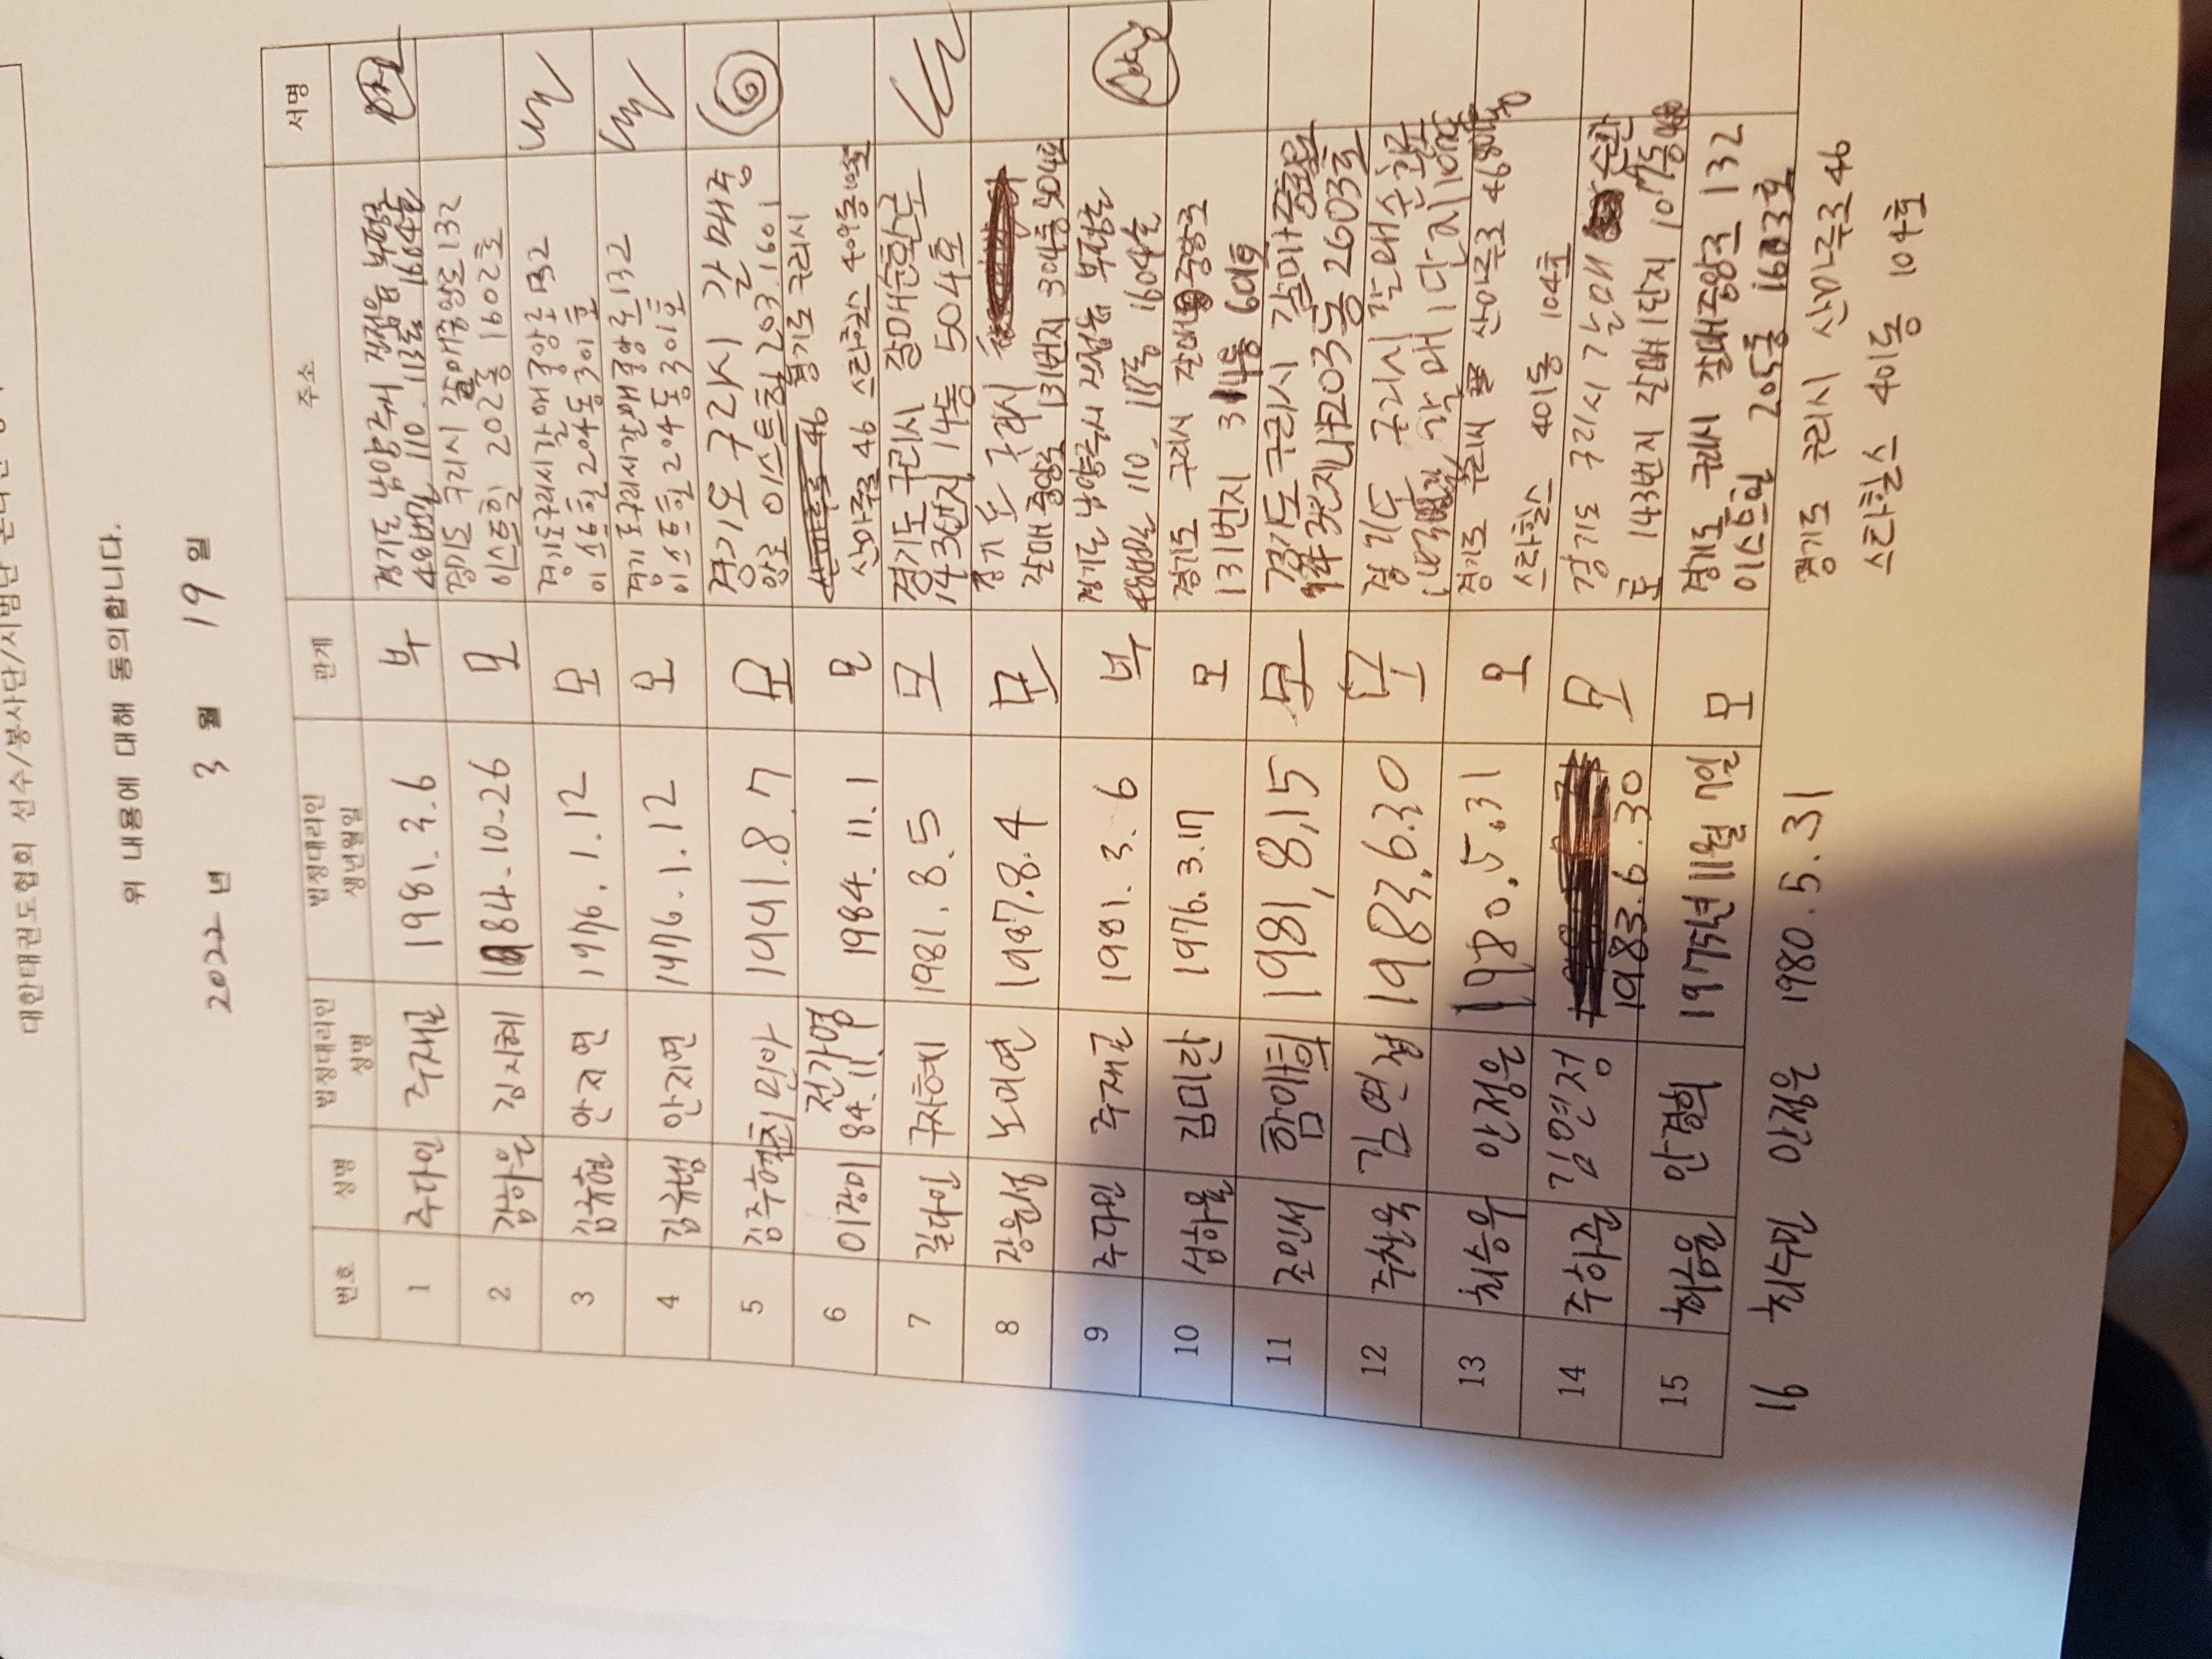 대한태권도협회 선수/봉사단/시범단
위 내용에 대해 동의합니다.
2022 년 3 월 19 일
번호 성명 법정대리인 성명 법정대리인 생년월일 관계 주소 서명
1 주다인 주재근 1981. 3. 6 부 경기도 남양주시 진접읍 부평로
48번길 110. 113동 1604호
2 김하은 김지혜 1984-10-26 모 경기도 구리시 갈매중앙로 132
이스트힐 202동 1602호
3 김규현 안지연 1976. 1. 12 모 경기도 구리시 갈매중앙로 132
이스트힐 204동 301호
4 김규범 안지연 1976. 1. 12 모 경기도 구리시 갈매중앙로 132
이스트힐 204동 301호
5 김주하 최민아 1991. 8. 7 모 경기도 구리시 갈매중
앙로 이스트힐 203. 1601
6 이장미 전가영 84. 11. 1 1984. 11. 1 모 경기도 구리시
산마루로 46 스타힐스 409동
7 길다인 구자혜 1981. 8. 5 모 경기도 구리시 갈매순환로
143번지 114동 504호
8 강윤성 노미연 1987. 8. 4 모 경기도 구리시
갈매중앙로 131번지 304동 504호
9 주다민 주재근 1981. 3. 6 부 경기도 남양주시 진접읍 부평로
48번길 110. 113동 1604호
10 심하율 김미란 1976. 3. 17 모 경기도 구리시 갈매중앙로
131번지 314동 601호
11 조민서 함미희 1981. 8. 15 모 경기도 구리시 갈매중앙로
203동 2603호
12 주찬욱 김연정 1983. 6. 30 모 경기도 구리시 갈매순환로
갈매1단지
13 최승우 안정은 1980. 5. 31 모 경기도 구리시 산마루로 46
스타힐스 401동 104호
14 주하준 김연정 1983. 6. 30 모 경기도 구리시 갈매순환
로 143번지 갈매1단지 107동
15 최음율 안결희 1975년 11월 7일 모 경기도 구리시 갈매중앙로 132
이스트힐 205동 1603호
16 최수민 안정은 1980. 5. 31 경기도 구리시 산마루로 46
스타힐스 401동 104호